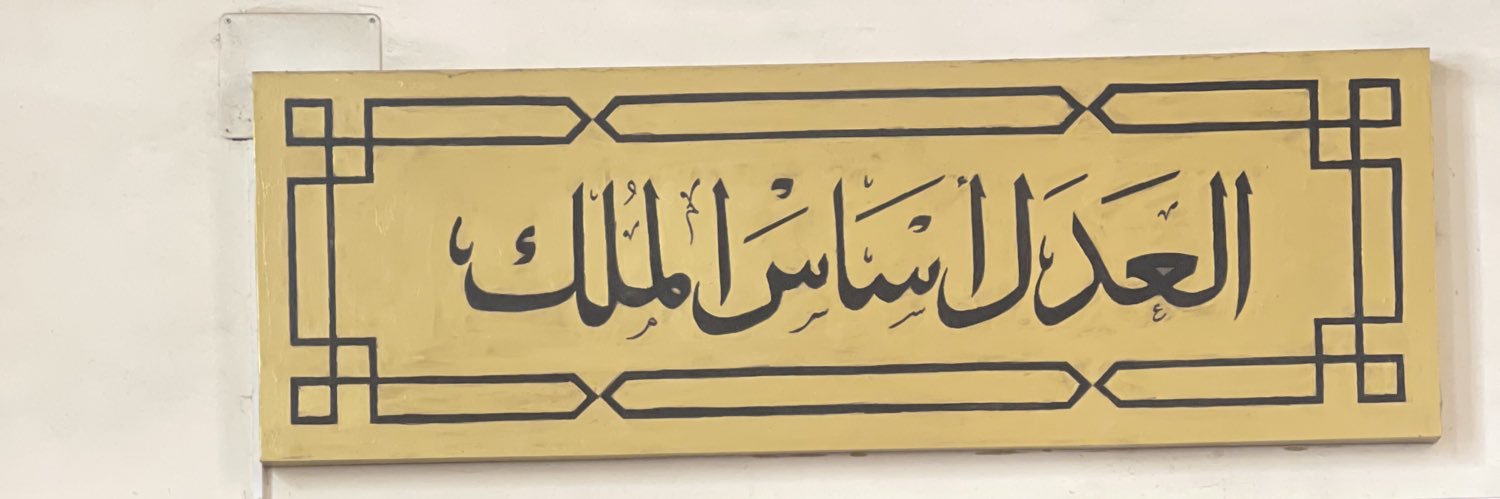 العدل أساس الملك